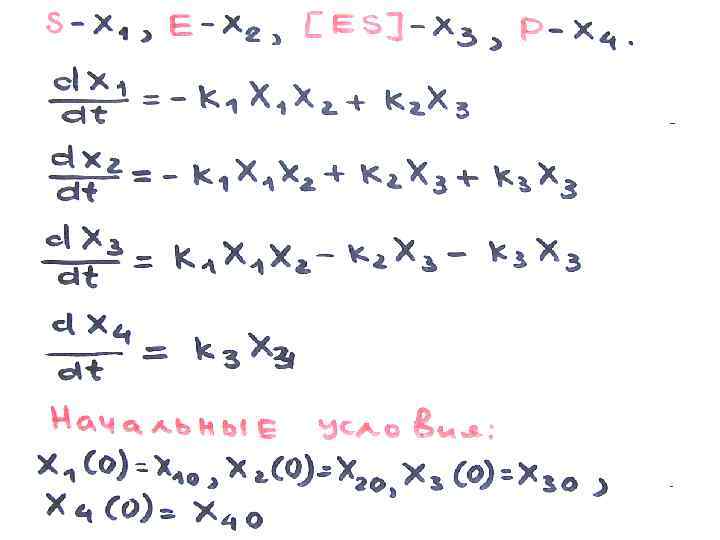 S - X₁, E - X₂, [ES] - X₃, P - X₄.
dX₁/dt = - K₁X₁X₂ + K₂X₃
dX₂/dt = - K₁X₁X₂ + K₂X₃ + K₃X₃
dX₃/dt = K₁X₁X₂ - K₂X₃ - K₃X₃
dX₄/dt = K₃X₃
Начальные условия:
X₁(0)=X₁₀, X₂(0)=X₂₀, X₃(0)=X₃₀,
X₄(0)= X₄₀